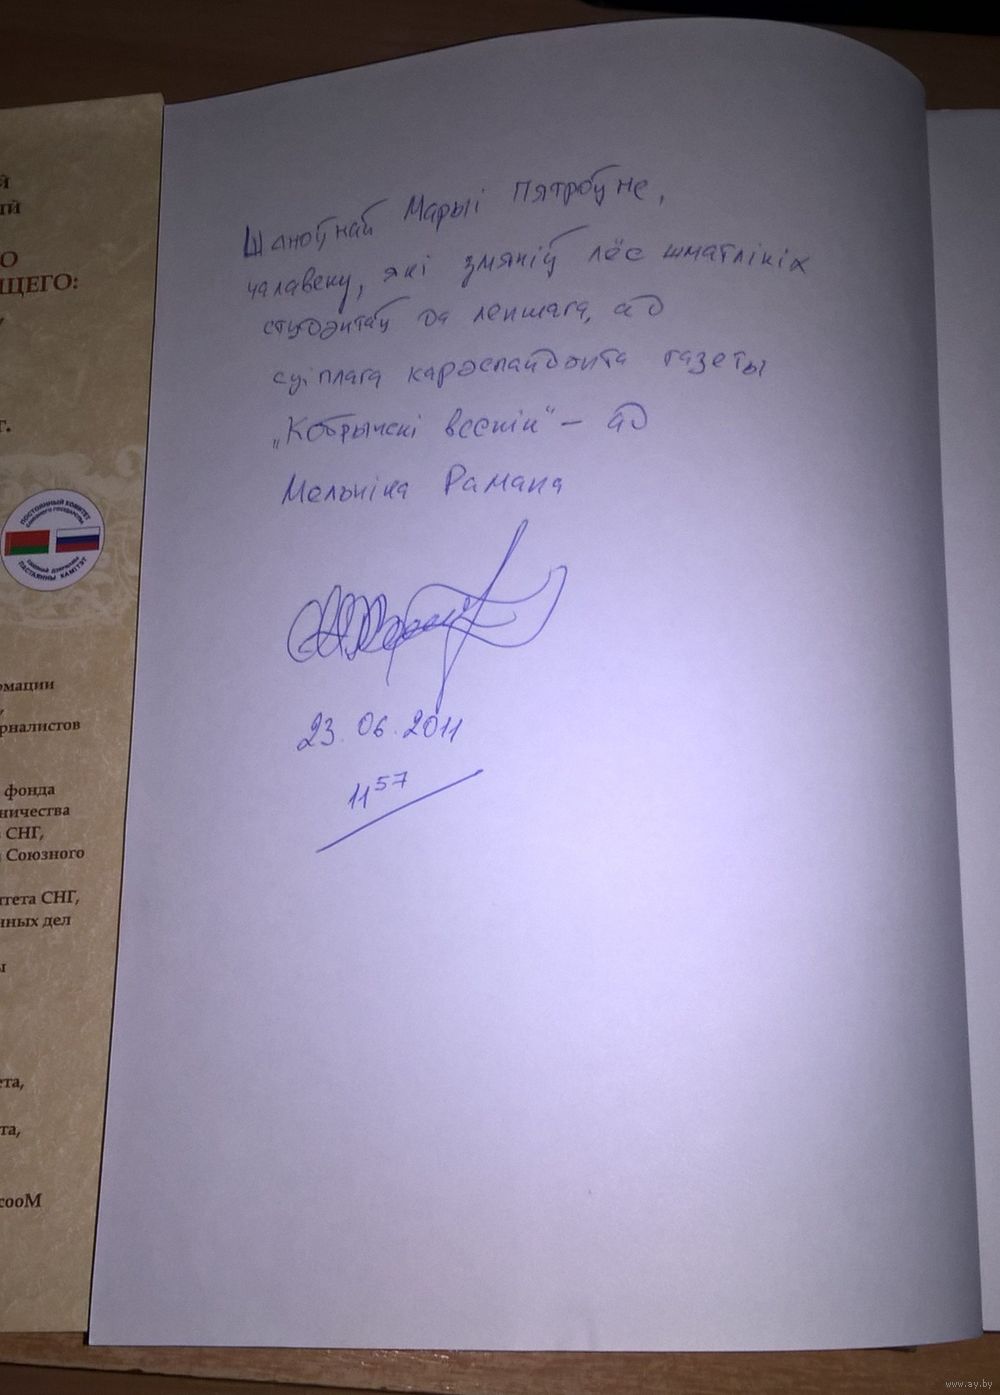 й
ый
О
ЩЕГО:
г.
ПОСТОЯННЫЙ КОМИТЕТ
СОЮЗНОГО ГОСУДАРСТВА
ПАСТАЯННЫ КАМІТЭТ
рмации
рналистов
фонда
ничества
СНГ,
Союзного
тета СНГ,
нных дел
ы
ета,
та,
сооМ
Шаноўнай Марыі Пятроўне,
чалавеку, які змяніў лёс шматлікіх
студэнтаў да лепшага, ад
сціплага карэспандэнта газеты
„Кобрынскі веснік“ – ад
Мельніка Рамана
23.06.2011
11 57
www.ay.by